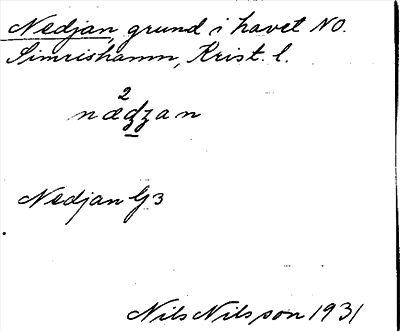 Nedjan, grund i havet NO.
Simrishamn, Krist. l.
2
nædʒan
Nedjan G3
Nils Nilsson 1931